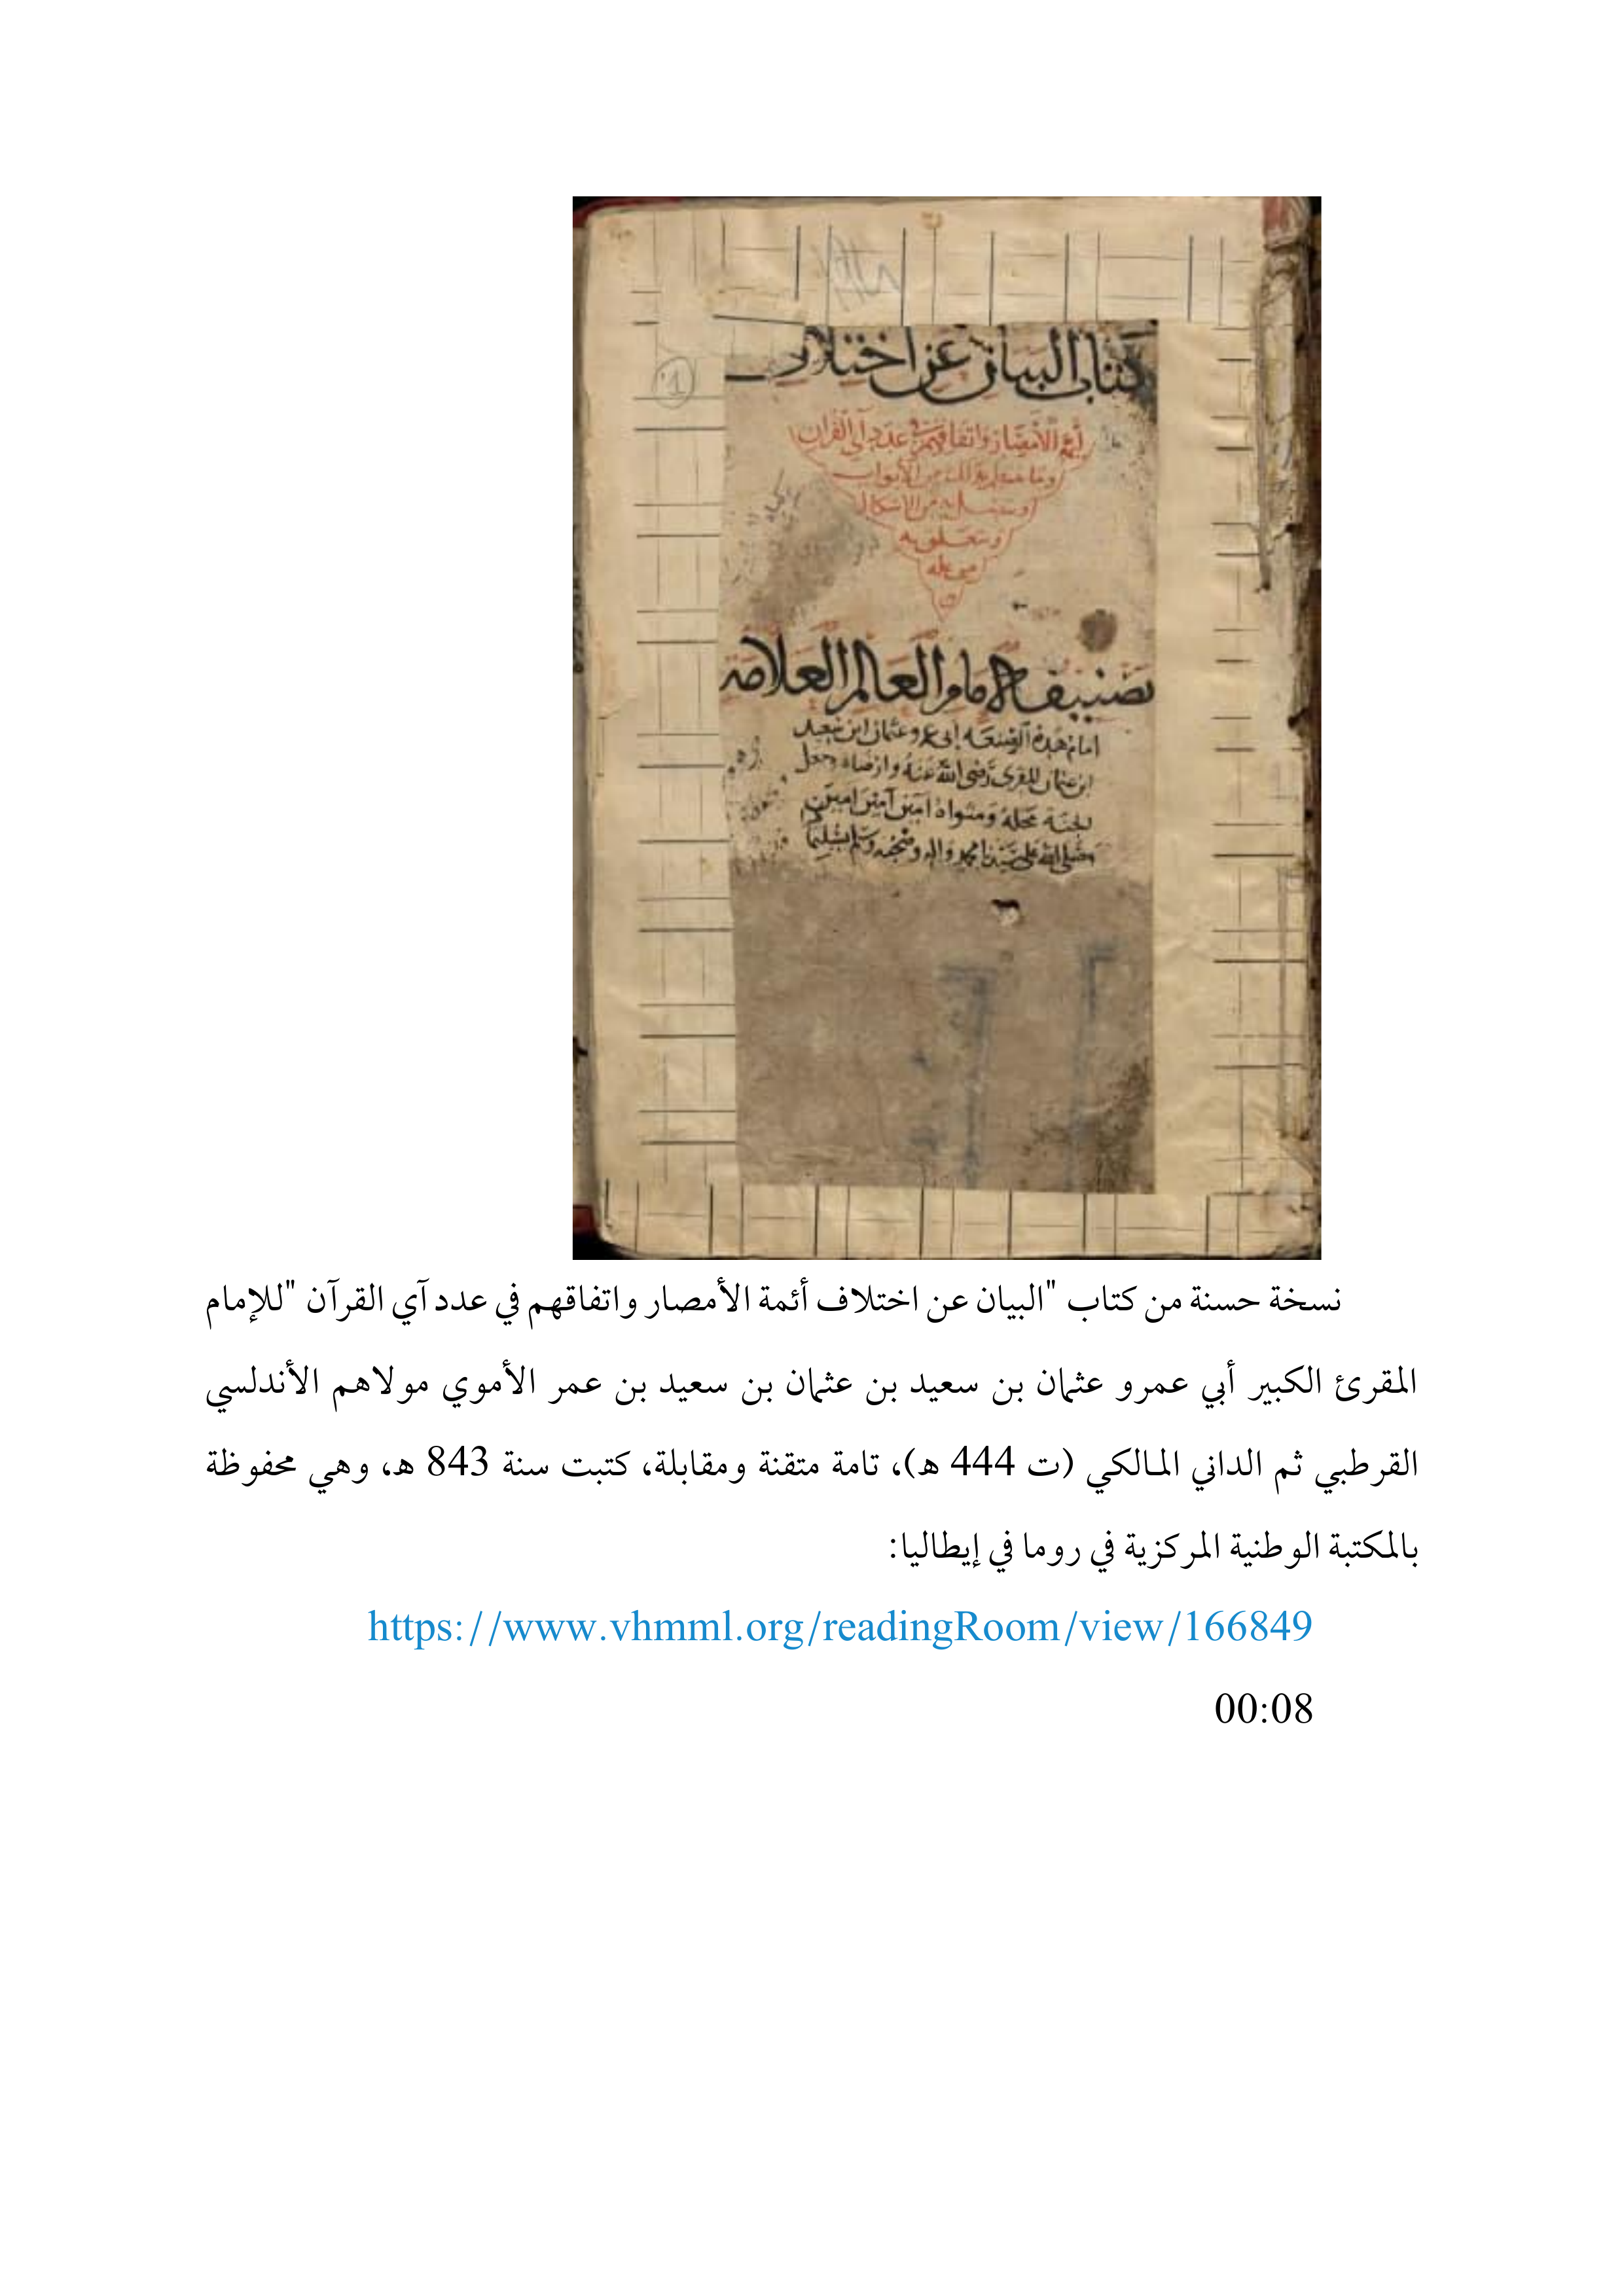 كتاب البيان عن اختلاف
أئمة الأمصار واتفاقهم في عدد آي القرآن
من الأبواب
من الإشكال
ويتعلق به
تصنيف الإمام العالم العلامة
امام هذه الصنعة أبي عمرو عثمان ابن سعيد
ابن عثمان المقرى رضي الله عنه وارضاه وجعل
الجنة محله ومثواه امين آمين امين
وصلى الله على سيدنا محمد واله وصحبه وسلم تسليما
نسخة حسنة من كتاب "البيان عن اختلاف أئمة الأمصار واتفاقهم في عدد آي القرآن "للإمام
المقرئ الكبير أبي عمرو عثمان بن سعيد بن عثمان بن سعيد بن عمر الأموي مولاهم الأندلسي
القرطبي ثم الداني المالكي (ت 444 هـ)، تامة متقنة ومقابلة، كتبت سنة 843 هـ، وهي محفوظة
بالمكتبة الوطنية المركزية في روما في إيطاليا:
https://www.vhmml.org/readingRoom/view/166849
00:08